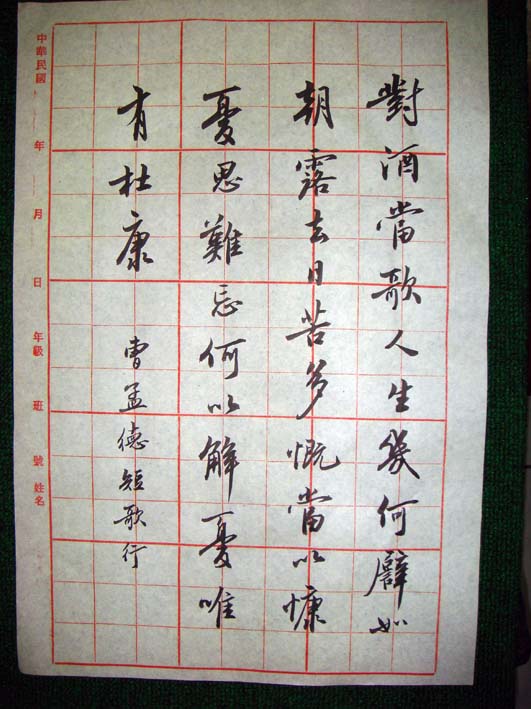 對酒當歌人生幾何譬如
朝露去日苦多慨當以慷
憂思難忘何以解憂唯
有杜康
曹孟德短歌行
中華民國 年 月 日 年級 班 號 姓名